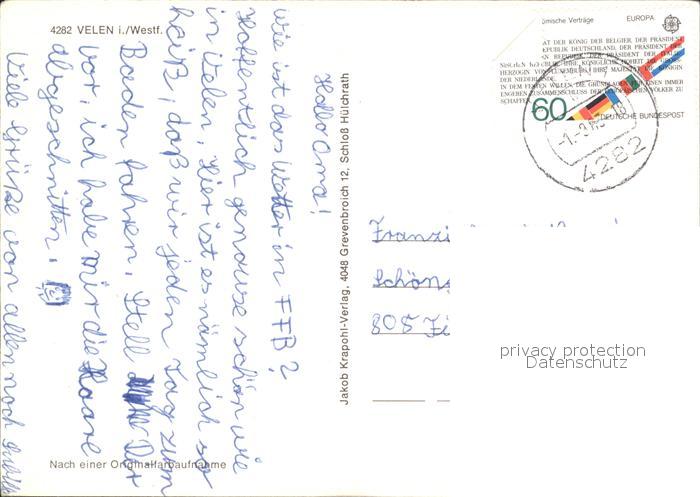 4282 VELEN i./Westf.
Hallo Oma!
wie ist das Wetter in FFB?
Hoffentlich genauso schön wie
in Velen. Hier ist es nämlich so
heiß, daß wir jeden Tag zum
Baden fahren. Stell Dir
vor ich habe mir die Haare
abgeschnitten.
Viele Grüße von allen noch
Nach einer Originalfarbaufnahme
Jakob Krapohl-Verlag, 4048 Grevenbroich 12, Schloß Hülchrath
ömische Verträge
EUROPA
AT DER KÖNIG DER BELGIER, DER PRÄSIDENT
REPUBLIK DEUTSCHLAND, DER PRÄSIDENT DER
REPUBLIK, DER PRÄSIDENT DER ITA
IHRE KÖNIGLICHE HOHEIT DIE GROSS
HERZOGIN VON LUXEMBURG, IHRE MAJESTÄT DIE KÖNIGIN
DER NIEDERLANDE,
IN DEM FESTEN WILLEN, DIE GRUNDLAGEN FÜR EINEN IMMER
ENGEREN ZUSAMMENSCHLUSS DER EUROPÄISCHEN VÖLKER ZU
SCHAFFEN,
60
DEUTSCHE BUNDESPOST
4282
Franzi
Schöns
808 Fi
privacy protection
Datenschutz